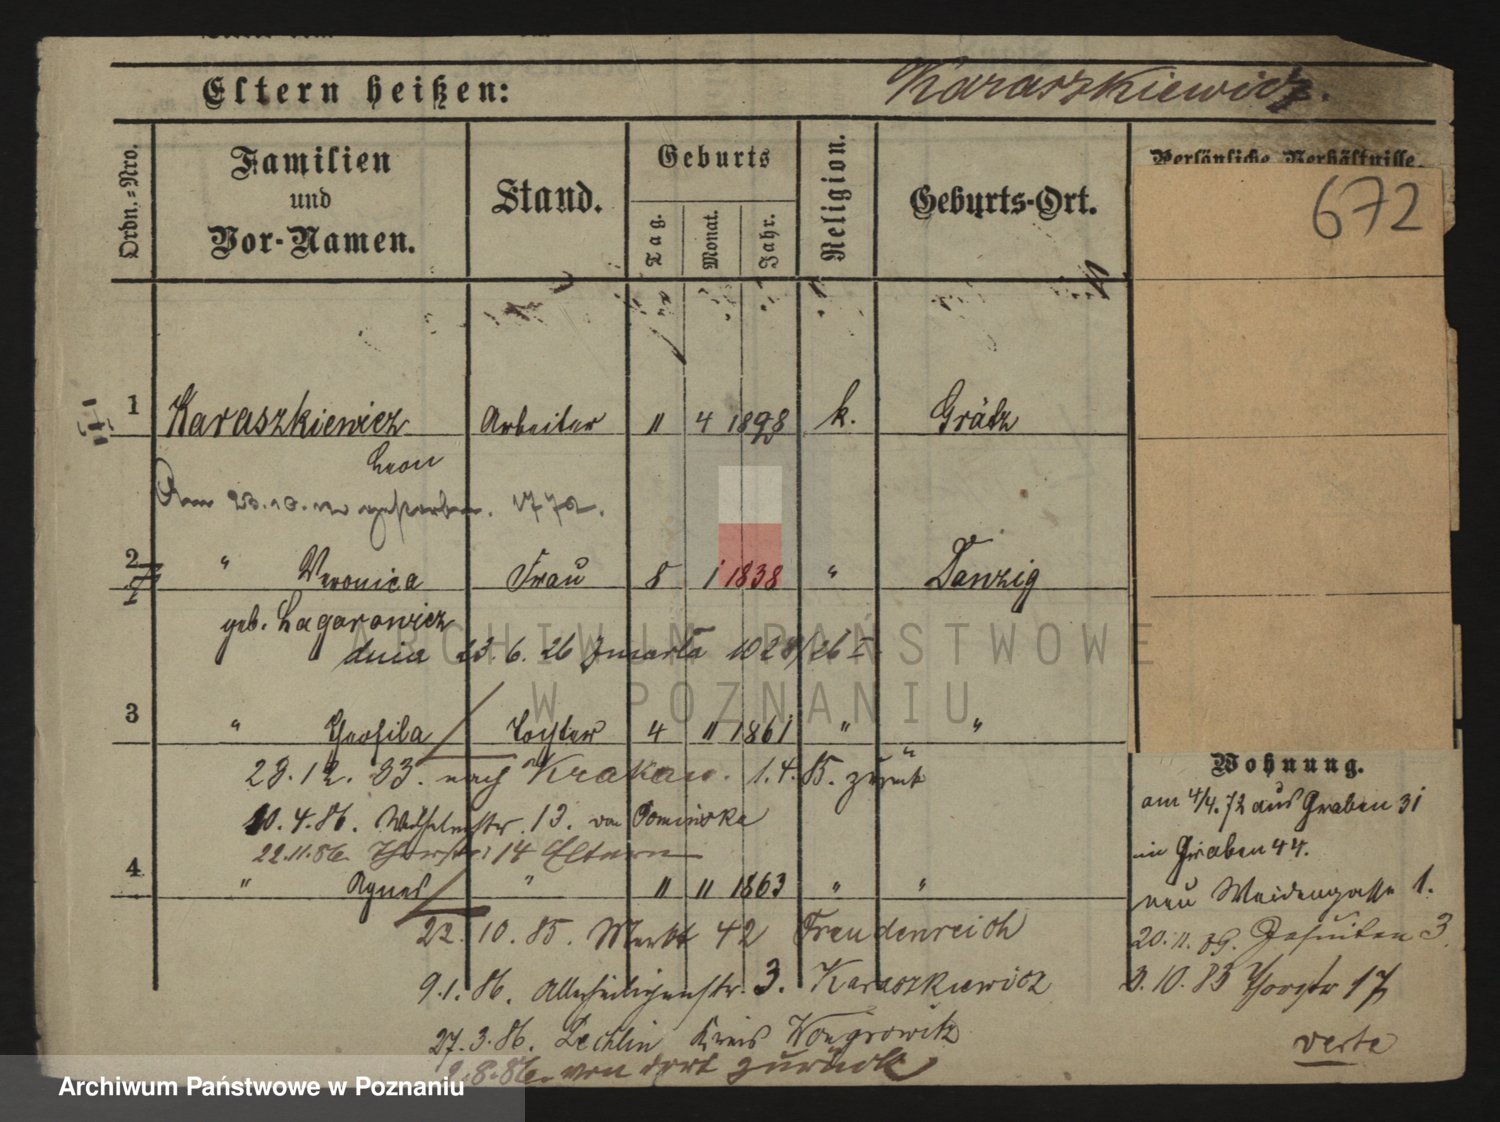 Eltern heißen:
Karaszkiewicz.
Ordn.-Nro.
Familien
und
Vor-Namen.
Stand.
Geburts
Tag.
Monat.
Jahr.
Religion.
Geburts-Ort.
Persönliche Verhältnisse.
672
1 Karaszkiewicz Arbeiter 11 4 k. Grätz
Leon
Am gestorben. 1772.
2 " Veronica Frau 8 1 1838 " Danzig
geb. Lagarowicz
dnia 23.6. 26 zmarła
3 " Theofila Tochter 4 11 1861 " "
28.12.83. nach Krakau. 1.4.85. zurück
10.4.86. Wilhelmstr. 13. von Pominska
22.11.86. Thorstr. 14 Eltern
4 " Agnes " 11 11 1863 " "
22.10.85. Markt 42 Freudenreich
9.1.86. Allerheiligenstr. 3. Karaszkiewicz
27.3.86. Lechlin Kreis Wongrowitz
2.8.86. von dort zurück
Wohnung.
am 4/4.72 aus Graben 31
in Graben 44.
neu Weidengasse 1.
20.11. Jesuiten 3.
3.10.83 Thorstr 17
verte
ARCHIWUM PAŃSTWOWE
W POZNANIU
Archiwum Państwowe w Poznaniu